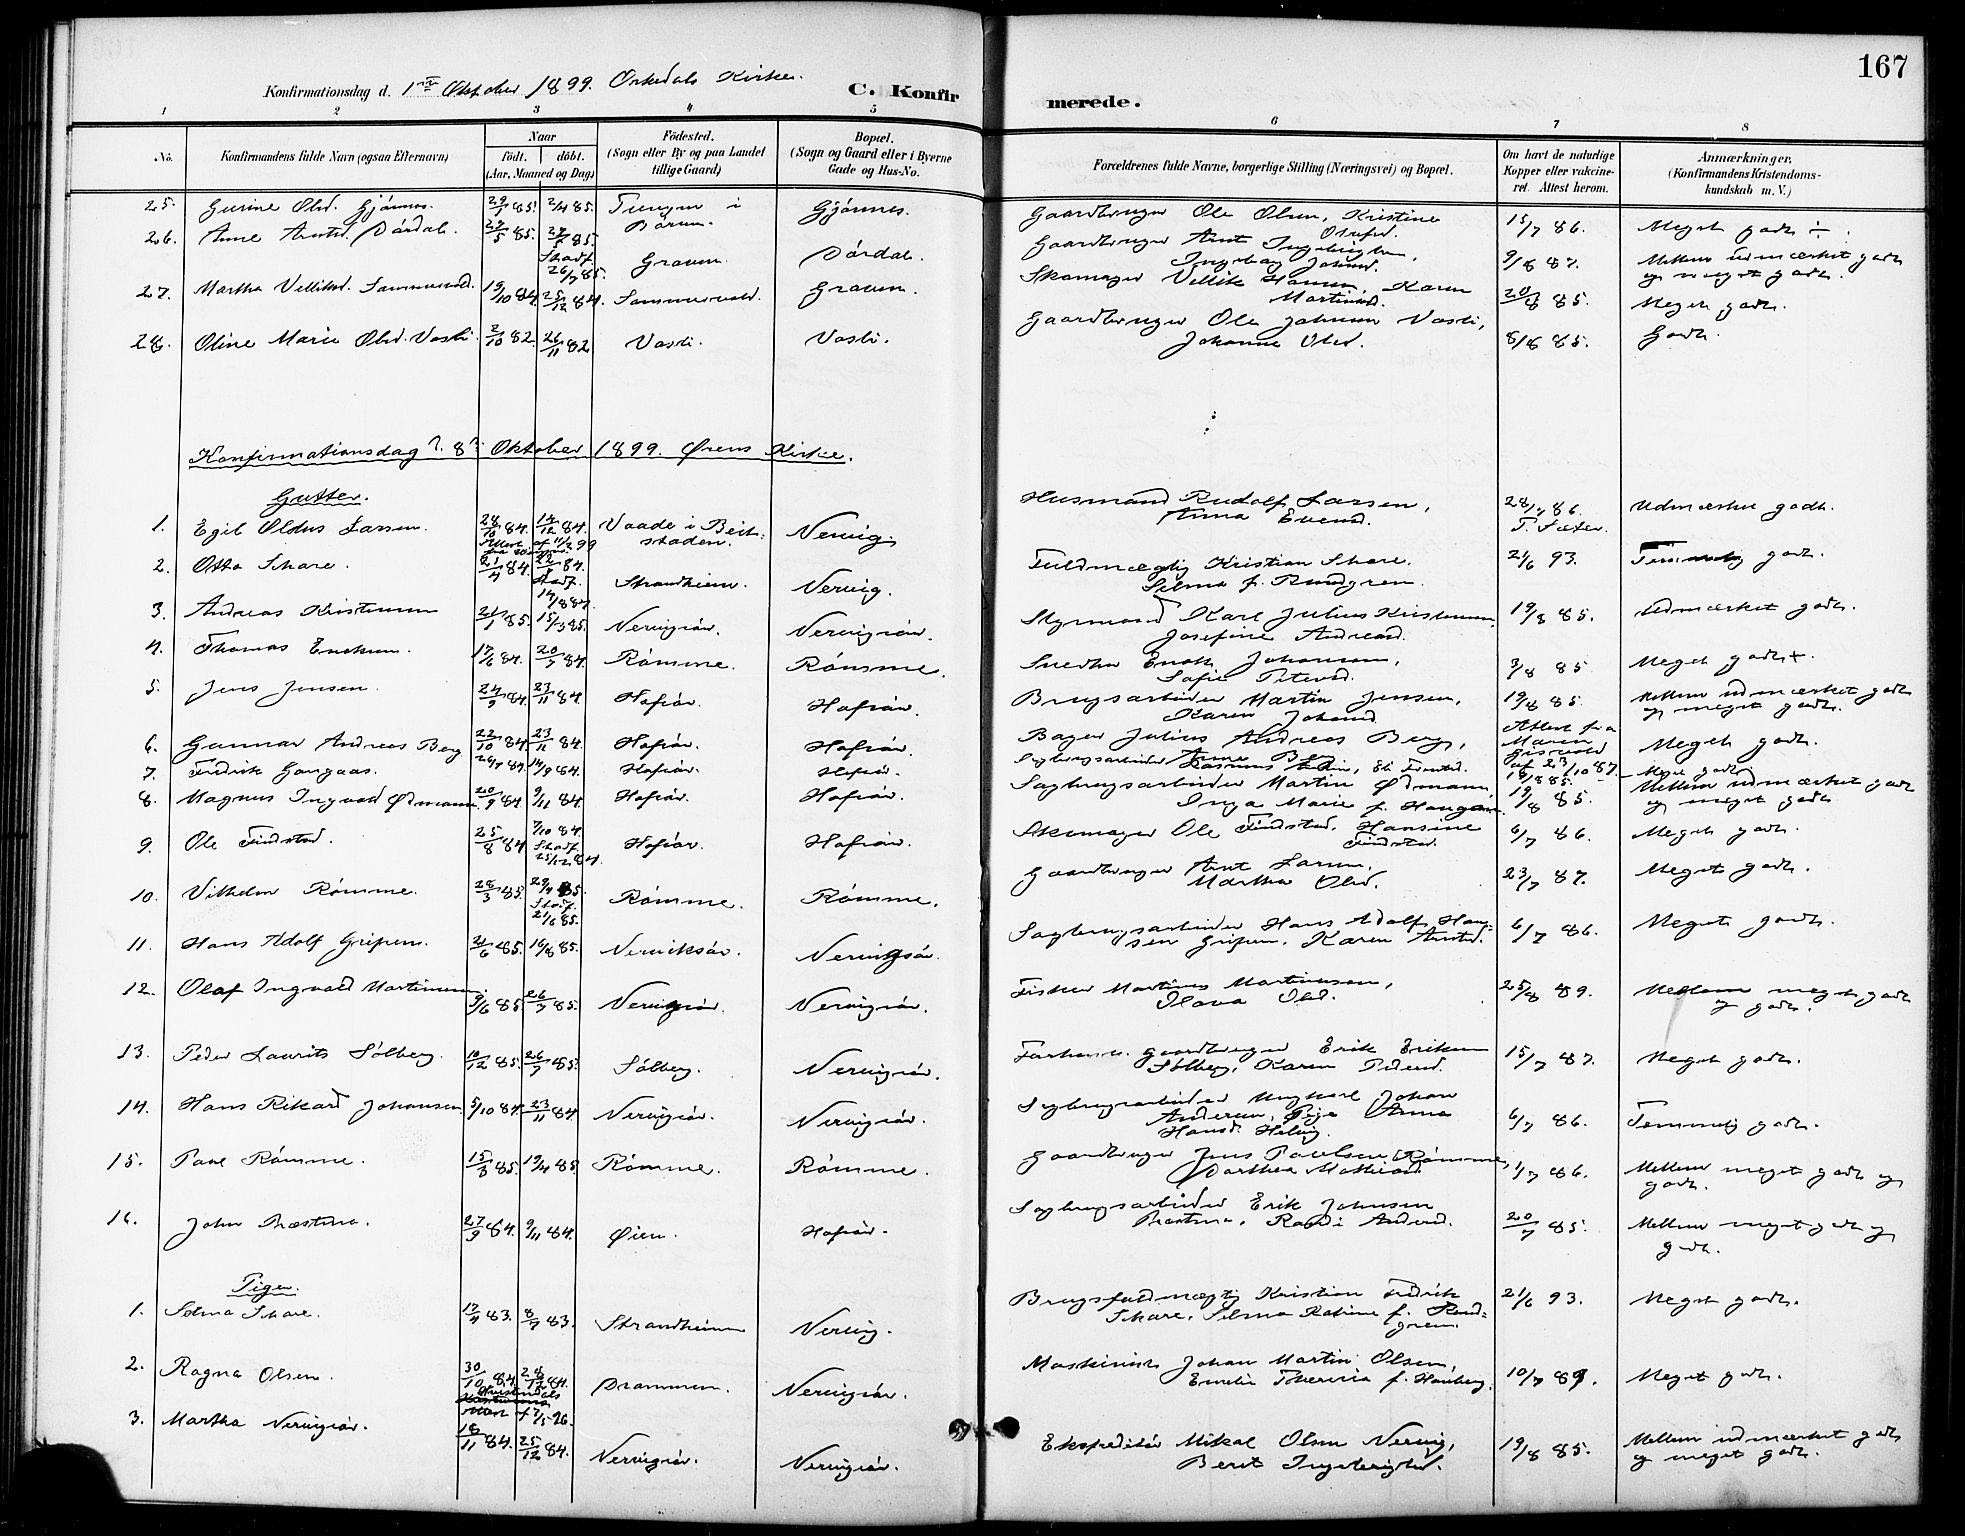 167
Konfirmationsdag d. 1ste Oktober 1899. Orkedals Kirke.
C. Konfirmerede.
1 2 3 4 5 6 7 8
No. Konfirmandens fulde Navn (ogsaa Efternavn) Naar födt. döbt. (Aar, Maaned og Dag) Födested. (Sogn eller By og paa Landet tillige Gaard) Bopæl. (Sogn og Gaard eller i Byerne Gade og Hus-No. Forældrenes fulde Navne, borgerlige Stilling (Næringsvei) og Bopæl. Om havt de naturlige Kopper eller vaccineret. Attest herom. Anmærkninger. (Konfirmandens Kristendomskundskab m. V.)
25. Gurine Olsd. Gjönnes. 85. 2/4 85. i Bårum. Gjönnes. Gaardbruger Ole Olsen, Kristine Olsd. 15/7 86. Meget godt ÷.
26. Anne Arntsd. Dårdal. 85. 85. Stadf. 26/7 85. Graum. Dårdal. Gaardbruger Arnt Ingebrigtsen, Ingeborg Johnsd. 9/8 87. Mellem udmærket godt og meget godt.
27. Martha Velliksd. Sommervold. 19/10 84. 25/12 84. Sommervold. Graum. Skomager Vellik Hansen, Karen Martinsd. 20/8 85. Meget godt.
28. Oline Marie Olsd. Vasli. 2/10 82. 26/11 82. Vasli. Vasli. Gaardbruger Ole Johnsen Vasli, Johanna Olsd. 8/8 85. Godt.
Konfirmationsdag d. 8de Oktober 1899. Ørens Kirke.
Gutter.
1. Egil Oldus Larsen. 28/10 84. 14/12 84. Attest af 11/2 99 Vaade i Beitstaden. Nervig. Husmand Rudolf Larsen, Anna Evensd. 28/7 86. T. Sæter. Udmærket godt.
2. Otto Skare. 21/4 84. 84. Stadf. 14/8 87. Strandheim. Nervig. Fuldmægtig Kristian Skare, Selma f. Rundgren. 21/6 93. Temmelig godt.
3. Andreas Kristensen 21/1 85. 15/3 85. Nervigsör. Nervigsör. Styrmand Karl Julius Kristensen, Josefine Andreasd. 19/8 85. Udmærket godt.
4. Thomas Enoksen. 17/6 84. 20/7 84. Römme. Römme. Snedker Enok Johansen, Sofie Petersd. 3/8 85 Meget godt+.
5. Jens Jensen. 24/9 84. 23/11 84. Hofsör. Hofsör. Brugsarbeider Martin Jensen, Karen Johansd. 19/8 85. Mellem udmærket godt og meget godt.
6. Gunnar Andreas Berg 22/10 84. 23/11 84. Hofsör. Hofsör. Bager Julius Andreas Berg, Anne Berg Attest fra Maren Gisvold af 23/10 87. Meget godt.
7. Fredrik Haugaas. 26/7 84. 14/9 84. Hofsör. Hofsör. Sagbrugsarbeider Rasmus 18/8 85. Meget godt.
8. Magnus Ingvald Ødmann. 20/9 84. 9/11 84. Hofsör. Hofsör. Sagbrugsarbeider Martin Ødmann, Inga Marie f. Haugan. 19/8 85. Mellem udmærket godt og meget godt.
9. Ole Findstad. 25/8 84. 7/10 84. Stadf. 25/12 84. Hofsör. Hofsör. Skomager Ole Findstad, Hansine Findstad. 6/7 86. Meget godt.
10. Vilhelm Römme. 28/3 85. 29/4 85. Stadf. 21/6 85. Römme. Römme. Gaardbruger Arnt Larsen, Martha Olsd. 23/7 87. Meget godt.
11. Hans Adolf Gripen. 21/6 85. 16/8 85. Nerviksör. Nervigsör. Sagbrugsarbeider Hans Adolf Hansen Gripen, Karen Arntsd. 6/7 86. Meget godt.
12. Olaf Ingvald Martinsen. 9/6 85. 26/7 85. Nervigsör. Nervigsör. Fisker Martinus Martinussen, Olava Olsd. 25/8 89. Mellem meget godt og godt.
13. Peder Laurits Sölberg. 10/12 85. 26/7 85. Sölberg. Nervigsör. Forhenv. gaardbruger Erik Eriksen Sölberg, Karen Pedersd. 15/7 87. Meget godt.
14. Hans Rikard Johansen 5/10 84. 23/11 84. Nervigsör. Nervigsör. Sagbrugsarbeider Ungkarl Johan Andersen, Pige Anna Hansd. Helvig. 6/7 86. Temmelig godt.
15. Paul Römme. 15/3 85. 19/4 85. Römme. Römme. Gaardbruger Jens Paulsen Römme, Dorthea Mathiasd. 1/7 86. Mellem meget godt og godt.
16. John Præstmo. 27/9 84. 9/11 84. Øien. Hofsör. Sagbrugsarbeider Erik Johnsen Præstmo, Randi Andersd. 20/7 85. Mellem meget godt og godt.
Piger.
1. Selma Skare. 17/4 83. 8/7 83. Strandheim Nervig. Brugsfuldmægtig Kristian Fredrik Skare, Selma Katrine f. Rundgren. 21/6 93. Meget godt.
2. Ragna Olsen. 30/10 84. 28/12 84. Drammen. Nervigsör. Maskinist Johan Martin Olsen, Emelie f. Hamberg. 10/7 89. Meget godt.
3. Martha Nervigsör. 18/11 84. 25/12 84. Nervigsör. Nervigsör. Ekspeditör Mikal Olsen Nervig, Berit Ingebrigtsd. 19/8 85. Mellem udmærket godt og meget godt.